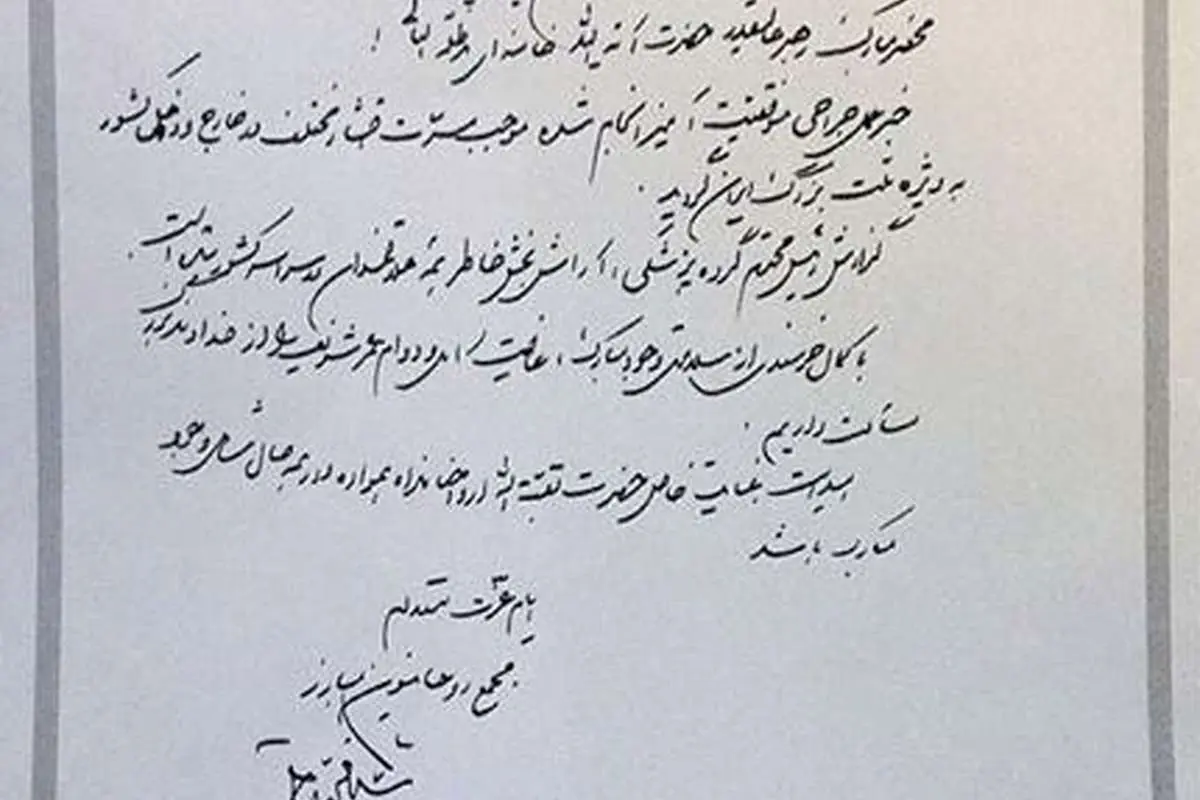 محضر مبارک رهبر عالیقدر حضرت آیة الله خامنه‌ای مد ظله العالی !
خبر عمل جراحی موفقیت آمیز انجام شده موجب مسرّت اقشار مختلف در خارج و داخل کشور
به ویژه ملت بزرگ ایران گردید .
گزارش رئیس محترم گروه پزشکی ، آرامش بخش خاطر همه علاقمندان در سراسر کشور
با کمال خرسندی از سلامتی وجود مبارک ، عافیت و دوام عمر شریف را از خداوند
مسألت داریم .
امید است عنایت خاص حضرت بقیة الله ارواحنا فداه همواره در همه حال شامل وجود
مبارک باشد
ایام عزّت مستدام
مجمع روحانیون مبارز